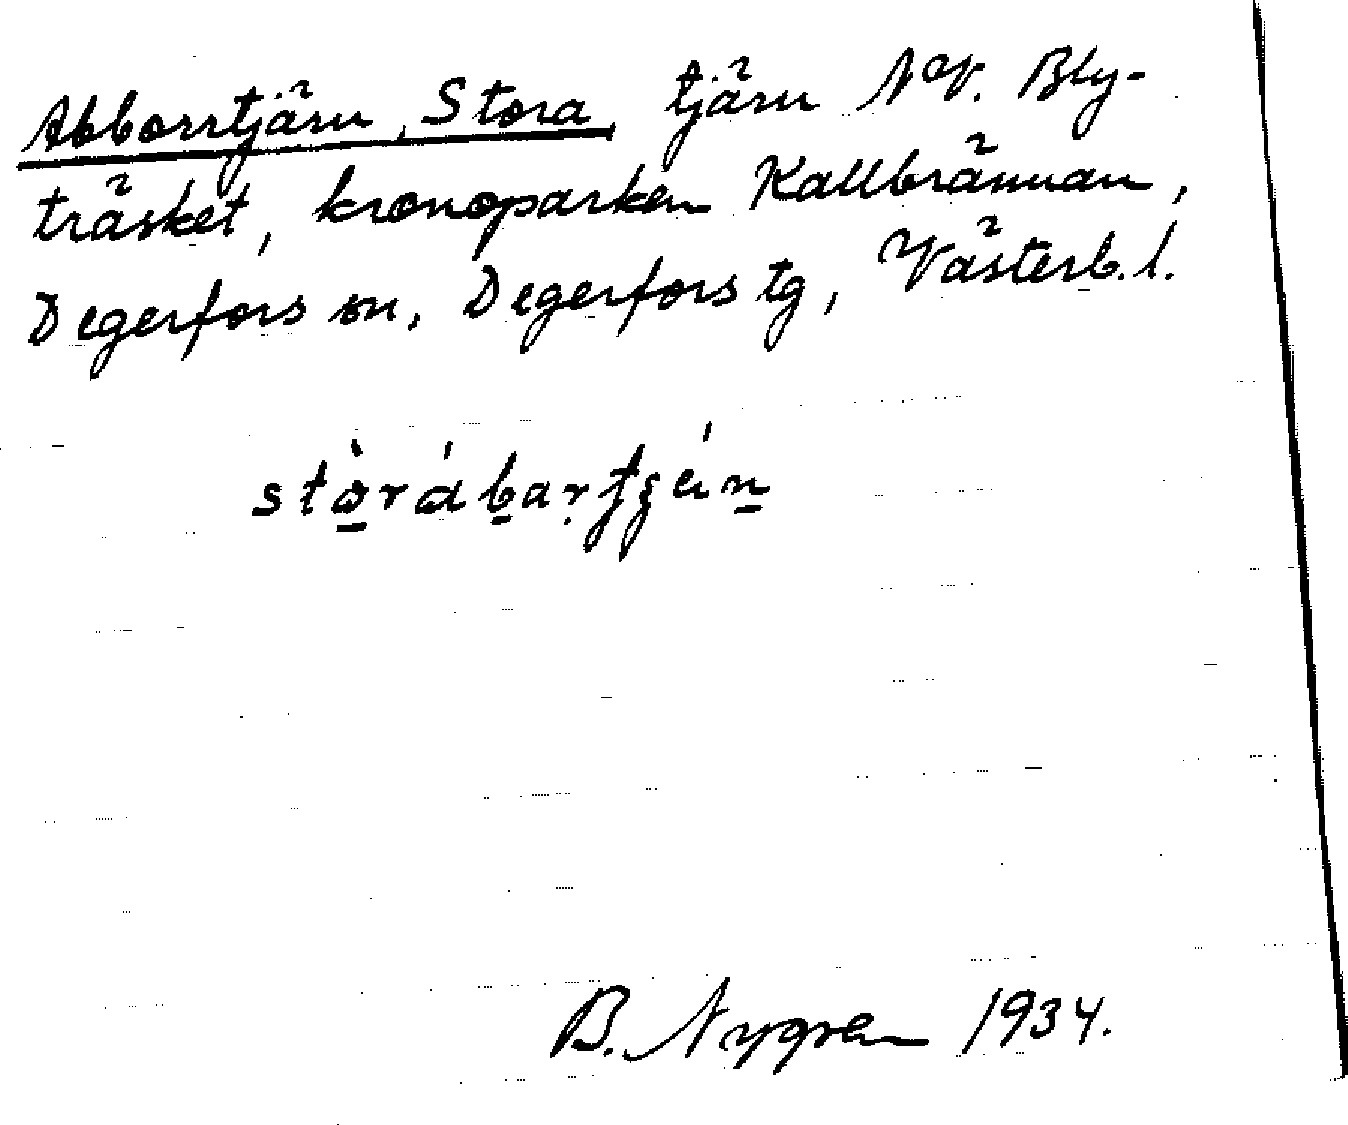 Abborrtjärn, Stora, tjärn NV. Bly-
träsket, kronoparken Kallbrännan,
Degerfors sn, Degerfors tg, Västerb. l.
B. Nygren 1934.